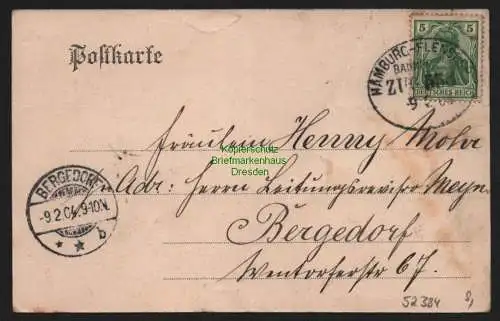 Postkarte
5 5
DEUTSCHES REICH
HAMBURG-FLENS
BAHNP
ZUG
9 2 04
Fräulein Henny Mohr
Kopierschutz
Briefmarkenhaus
Dresden
Adr: Herrn Leitungsrevisor Meyn
BERGEDORF
-9.2.04.9-10N.
* * b
Bergedorf
Wentorferstr 67.
52384